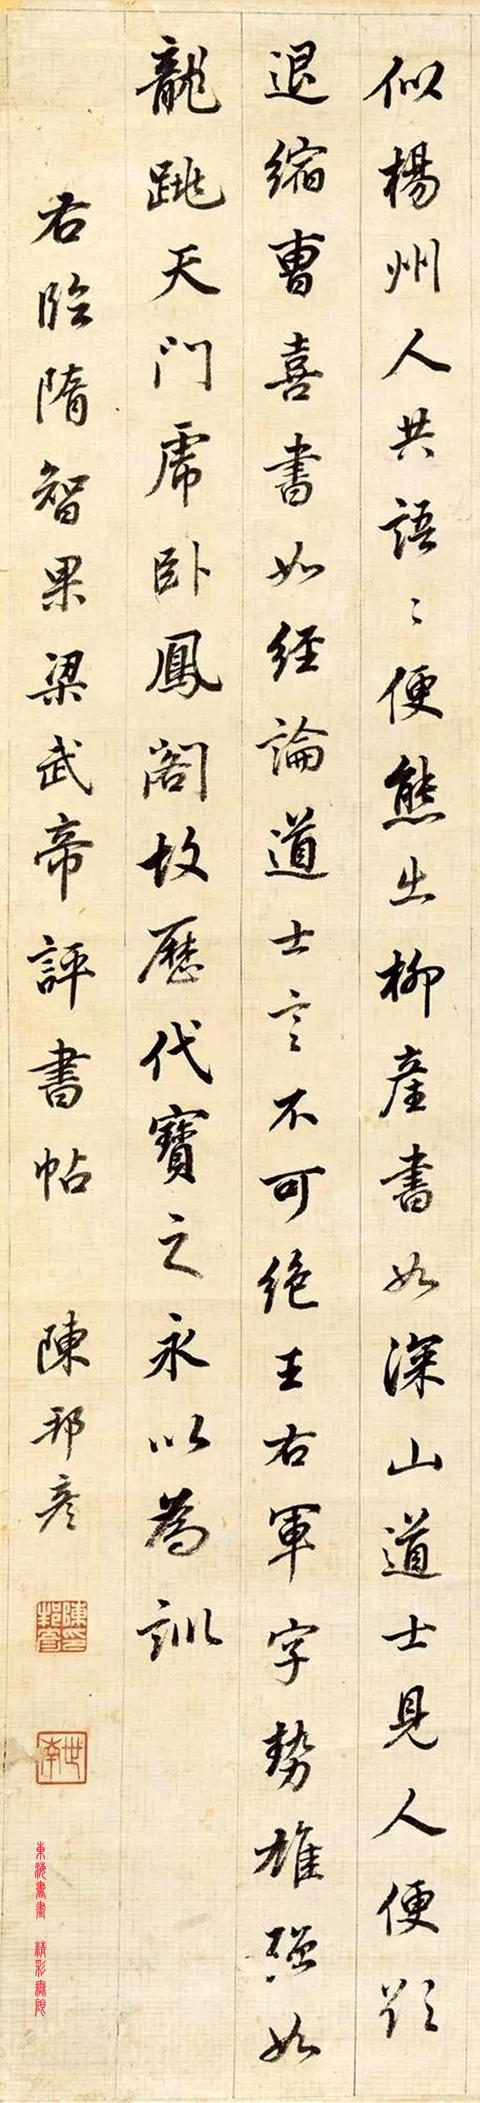 似楊州人共語〻便態出柳產書如深山道士見人便欲
退縮曹喜書如經論道士言不可絕王右軍字勢雄強如
龍跳天門虎臥鳳閣故歷代寶之永以為訓
右臨隋智果梁武帝評書帖 陳邦彥
陳邦彥印
世南
東海書畫 精彩無限